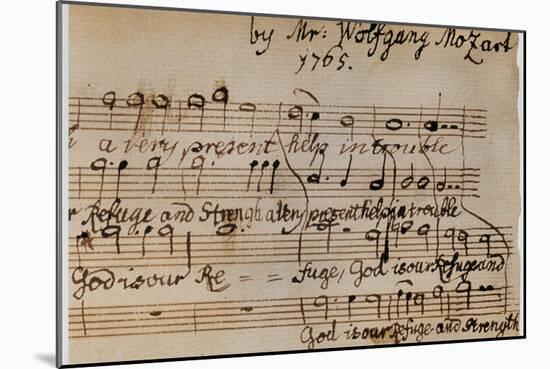 by Mr: Wolfgang Mozart
1765.
a very present help in trouble
Refuge and Strengh a Very present help in a trouble
God is our Re = = fuge, God is our Refuge and
God is our Refuge and Strength